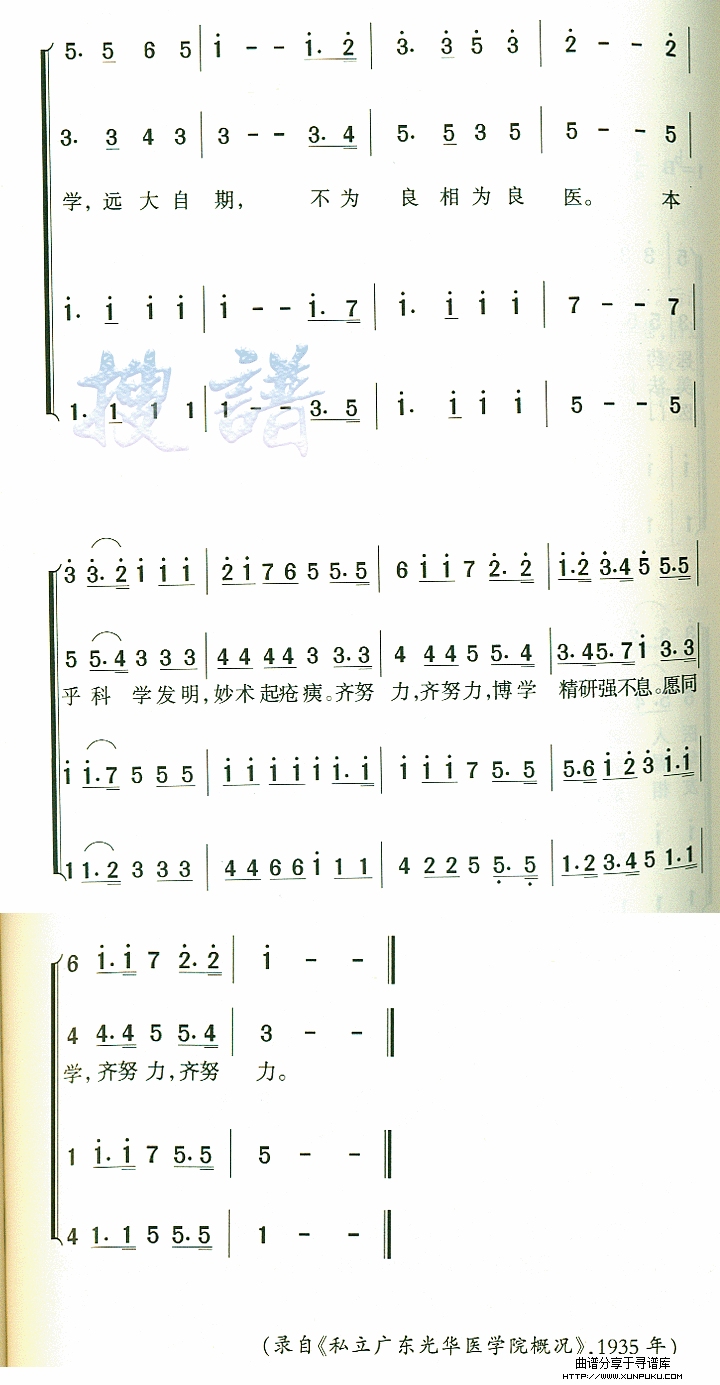 5. 5 6 5 | i - - i. 2 | 3. 3 5 3 | 2 - - 2 |
3. 3 4 3 | 3 - - 3. 4 | 5. 5 3 5 | 5 - - 5 |
学,远大自期, 不为 良相为良 医。 本
i. i i i | i - - i. 7 | i. i i i | 7 - - 7 |
搜谱
1. 1 1 1 | 1 - - 3. 5 | i. i i i | 5 - - 5 |
3 3. 2 i i i | 2 i 7 6 5 5. 5 | 6 i i 7 2. 2 | i. 2 3. 4 5 5. 5 |
5 5. 4 3 3 3 | 4 4 4 4 3 3. 3 | 4 4 4 5 5. 4 | 3. 4 5. 7 i 3. 3 |
乎科 学发明,妙术起疮痍。齐努 力,齐努力,博学 精研强不息。愿同
i i. 7 5 5 5 | i i i i i i. i | i i i 7 5. 5 | 5. 6 i 2 3 i. i |
1 1. 2 3 3 3 | 4 4 6 6 i 1 1 | 4 2 2 5 5. 5 | 1. 2 3. 4 5 1. 1 |
6 i. i 7 2. 2 | i - - ‖
4 4. 4 5 5. 4 | 3 - - ‖
学,齐努力,齐努 力。
1 i. i 7 5. 5 | 5 - - ‖
4 1. 1 5 5. 5 | 1 - - ‖
(录自《私立广东光华医学院概况》.1935年)
曲谱分享于寻谱库
HTTP://WWW.XUNPUKU.COM